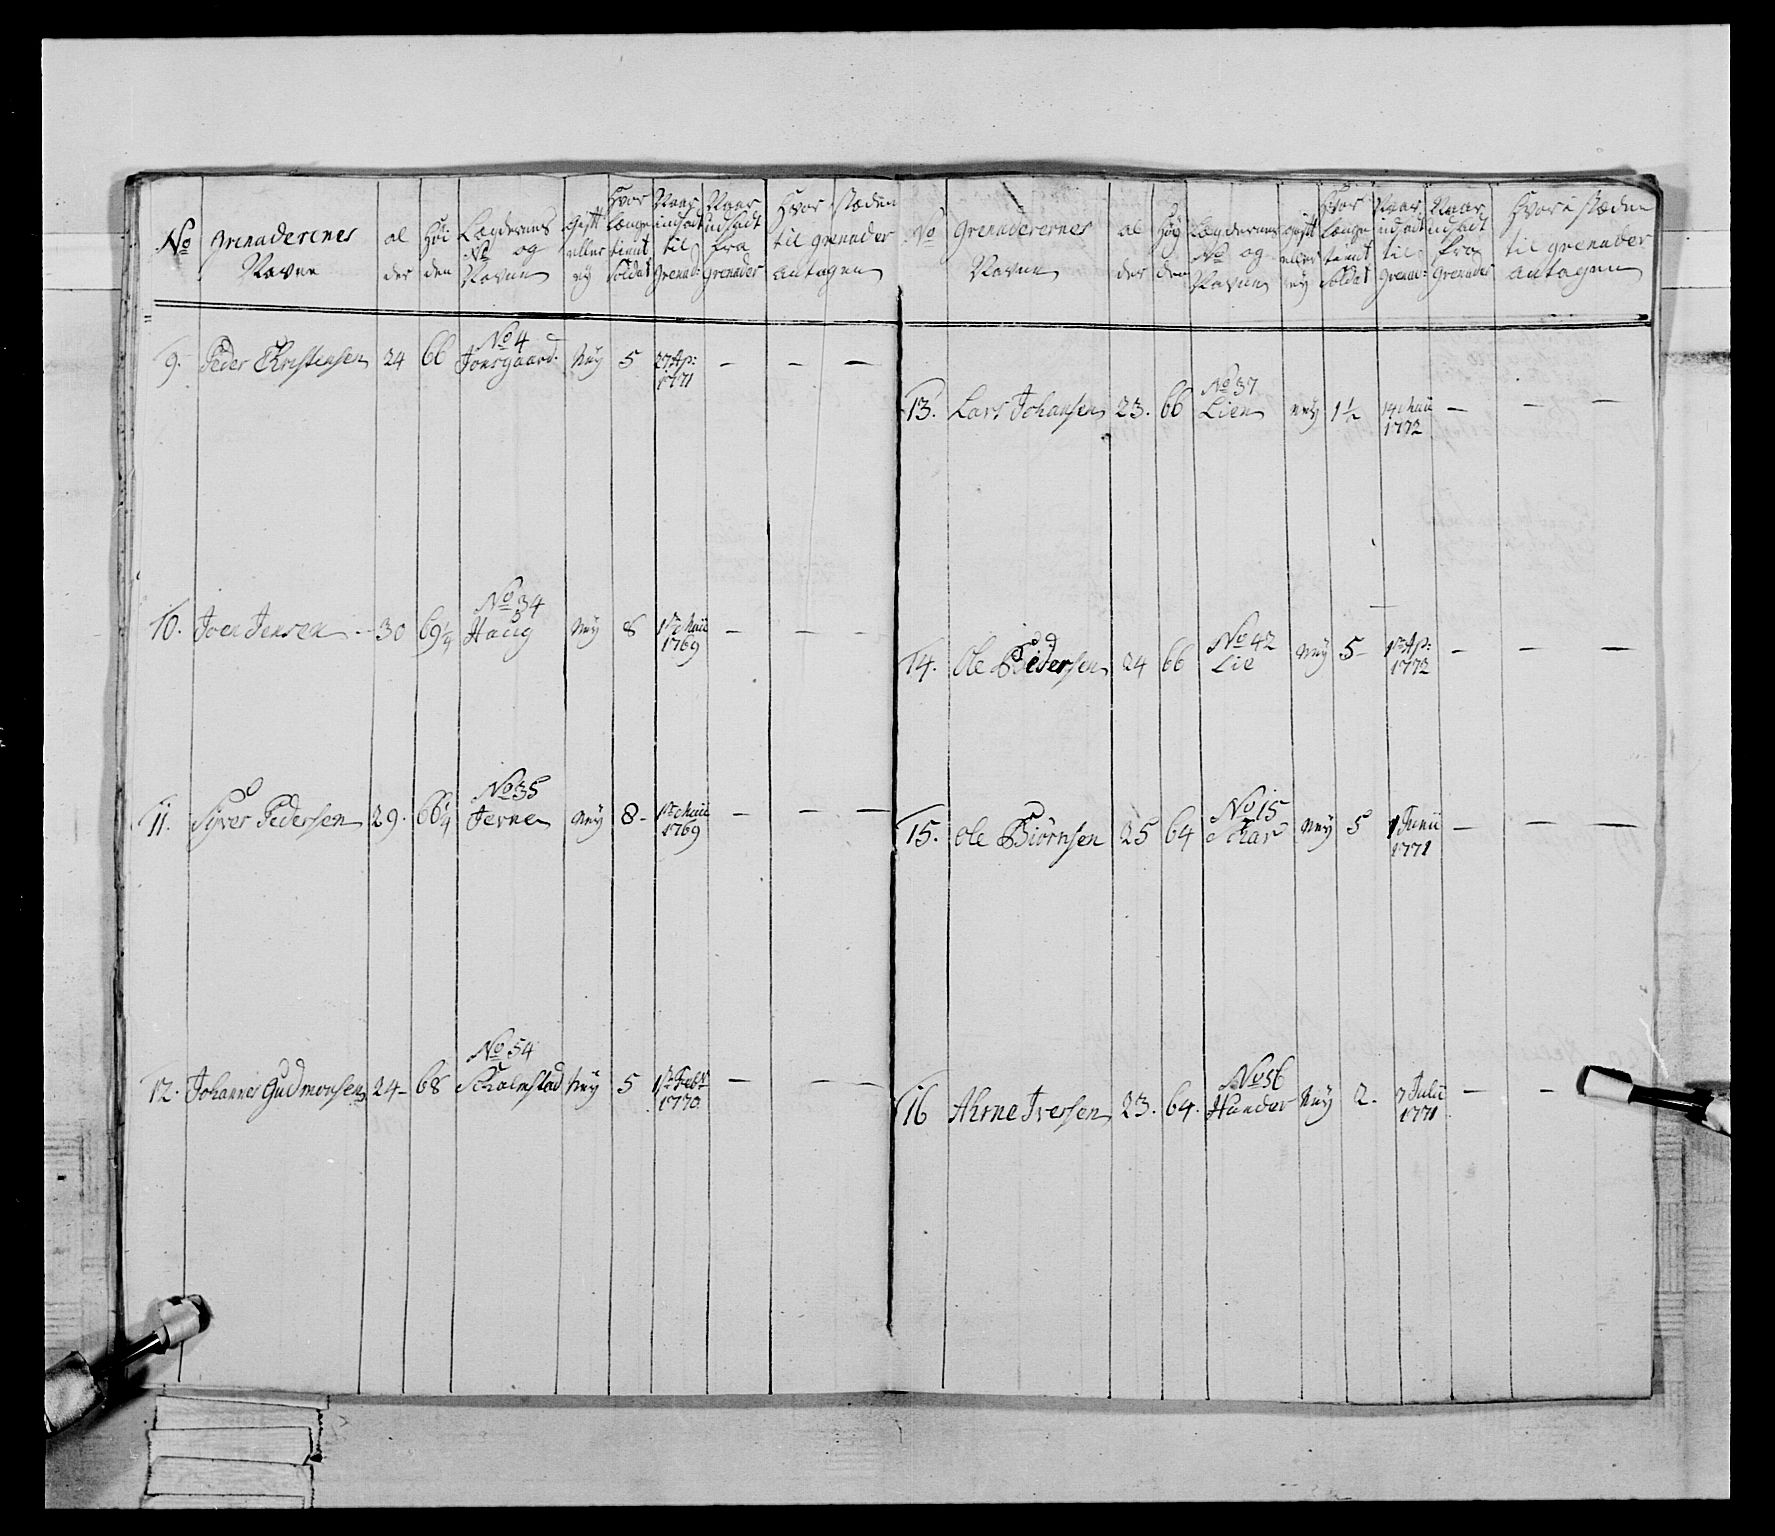 No Grenaderenes Navne | al der | Høi den | Lægdernes No og Navne | Gift eller ey | Hvor længe tient Soldat | Naar indsadt til Grenad: | Naar udsadt fra Grenader | Hvor i stæden til grenader antagen
9. Peder Christensen 24 66 No 4 Jonsgaard. Ney 5 27 Ap: 1771 — — —
10. Joen Jensen 30 69¼ No 34 Haug Ney 8 1ste Maii 1769 — — —
11. Syver Pedersen 29. 66¼ No 35 Terne Ney 8 1ste Maii 1769 — — —
12. Johannes Gudmonsen 24 68 No 54 Schalmstad Ney 5 1ste Febr 1770. — — —
No Grenaderernes Navne | al der | Høy den | Lægdernes No og Navne | Gift eller ey | Hvor længe tient Soldat | Naar indsadt til Grenad: | Naar udsadt fra Grenader | Hvor i stæden til grenader antagen
13. Lars Johansen 23. 66 No 37 Lien Ney 1½ 14 Maii 1772 — — —
14. Ole Pedersen 24 66 No 42 Lie Ney 5 1ste Ap: 1772 — — —
15. Ole Biørnsen 25 64 No 15 Schar Ney 5 1 Junii 1771 — — —
16 Ahrne Iversen 23. 64. No 56 Hunder Ney 2. 7 Julii 1771 — —